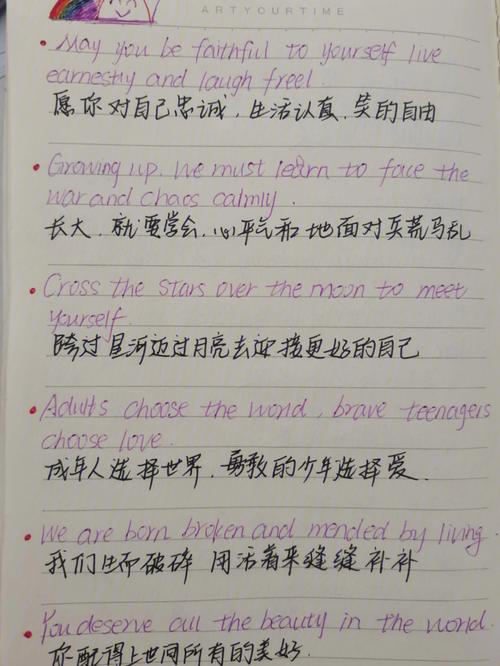 ARTYOURTIME
May you be faithful to yourself live
earnestry and laugh freel.
愿你对自己忠诚，生活认真，笑的自由
Growing up. We must learn to face the
war and chaos calmly.
长大，就要学会，心平气和地面对兵荒马乱
Cross the stars over the moon to meet
yourself.
跨过星河迈过月亮去迎接更好的自己
Adults choose the world, brave teenagers
choose love.
成年人选择世界，勇敢的少年选择爱.
We are born broken and mended by living.
我们生而破碎 用活着来缝缝补补
You deserve all the beauty in the world.
你配得上世间所有的美好.